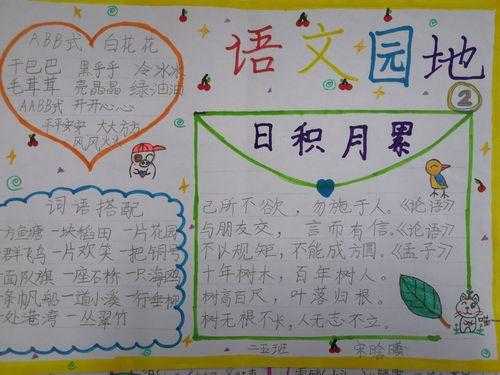 语文园地
2
ABB式 白花花
干巴巴 黑乎乎 冷冰冰
毛茸茸 亮晶晶 绿油油
AABB式 开开心心
平平安安 大大方方
风风火火
词语搭配
方鱼塘 一块稻田 一片花园
群飞鸟 一片欢笑 一把铜号
面队旗 一座石桥 一只海鸥
条帆船 一道小溪 一行垂柳
处港湾 一丛翠竹
日积月累
己所不欲,勿施于人。《论语》
与朋友交,言而有信。《论语》
不以规矩,不能成方圆。《孟子》
十年树木,百年树人。
树高百尺,叶落归根。
树无根不长,人无志不立。
二五班